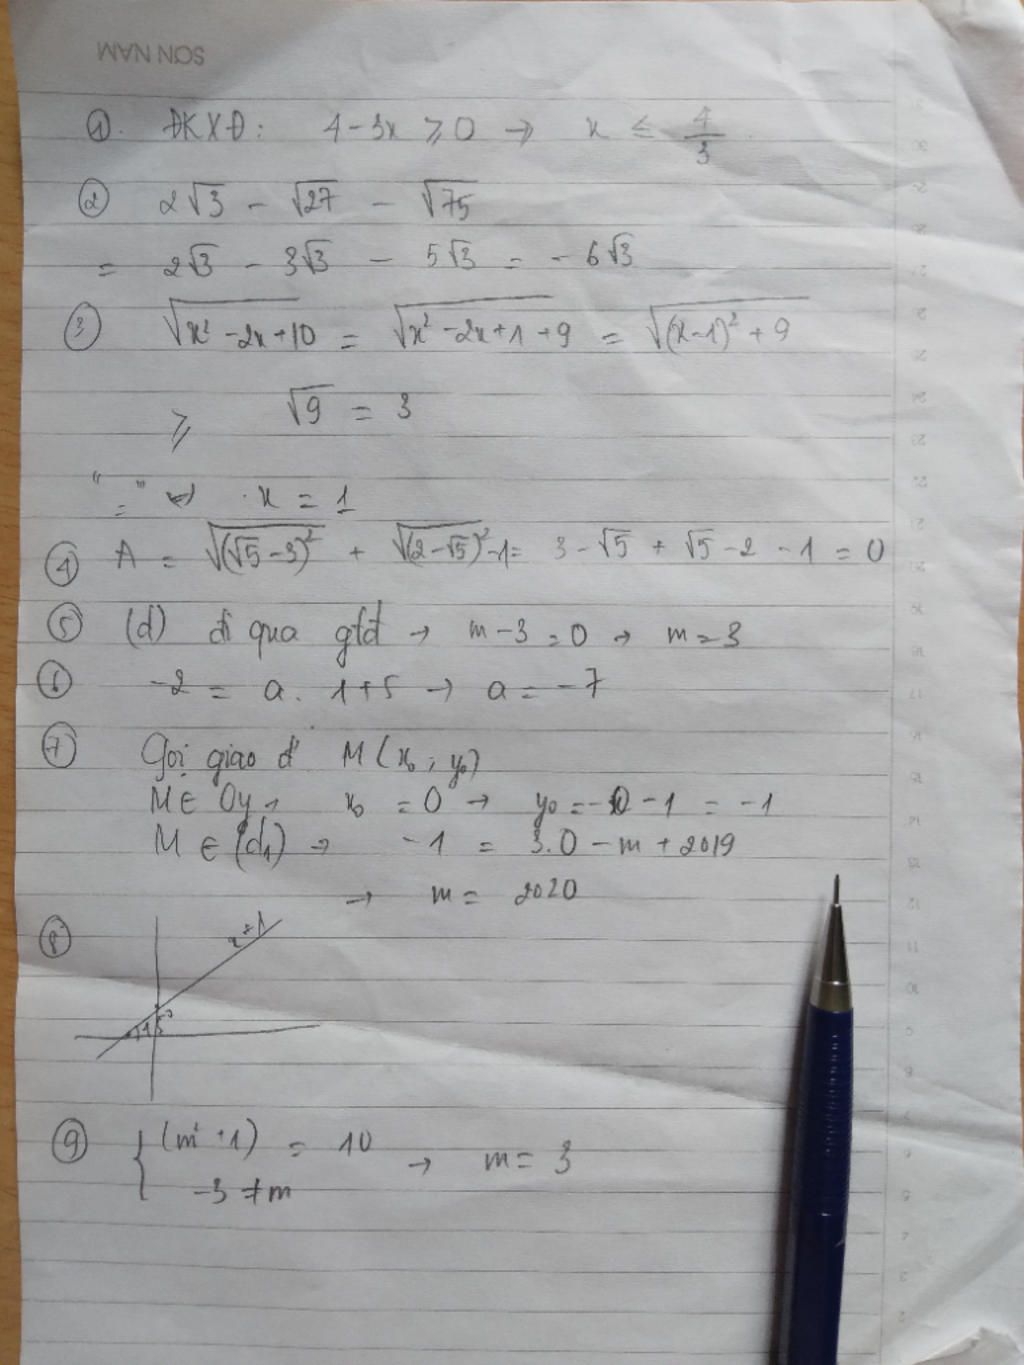 SƠN NAM
① ĐKXĐ: 4 - 3x ⩾ 0 → x ≤ 4/3
② 2√3 - √27 - √75
= 2√3 - 3√3 - 5√3 = - 6√3
③ √(x² - 2x + 10) = √(x² - 2x + 1 + 9) = √((x-1)² + 9)
⩾ √9 = 3
"=" ⇔ x = 1
④ A = √((√5 - 3)²) + √((2 - √5)²) - 1 = 3 - √5 + √5 - 2 - 1 = 0
⑤ (d) đi qua gtđ → m - 3 = 0 → m = 3
⑥ -2 = a. 1 + 5 → a = -7
⑦ Gọi giao đ' M(x₀; y₀)
M ∈ Oy → x₀ = 0 → y₀ = -0 - 1 = -1
M ∈ (d₁) → -1 = 3.0 - m + 2019
→ m = 2020
⑧ x+1
45°
⑨ { (m² + 1) = 10 → m = 3
-3 ≠ m